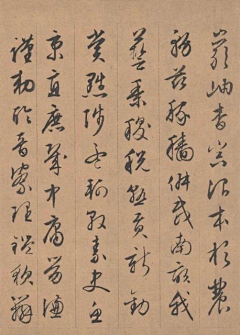 巖岫杳冥治本於農
務茲稼穡俶載南畝我
藝黍稷稅熟貢新勸
賞黜陟孟軻敦素史魚
秉直庶幾中庸勞謙
謹敕聆音察理鑑貌辨